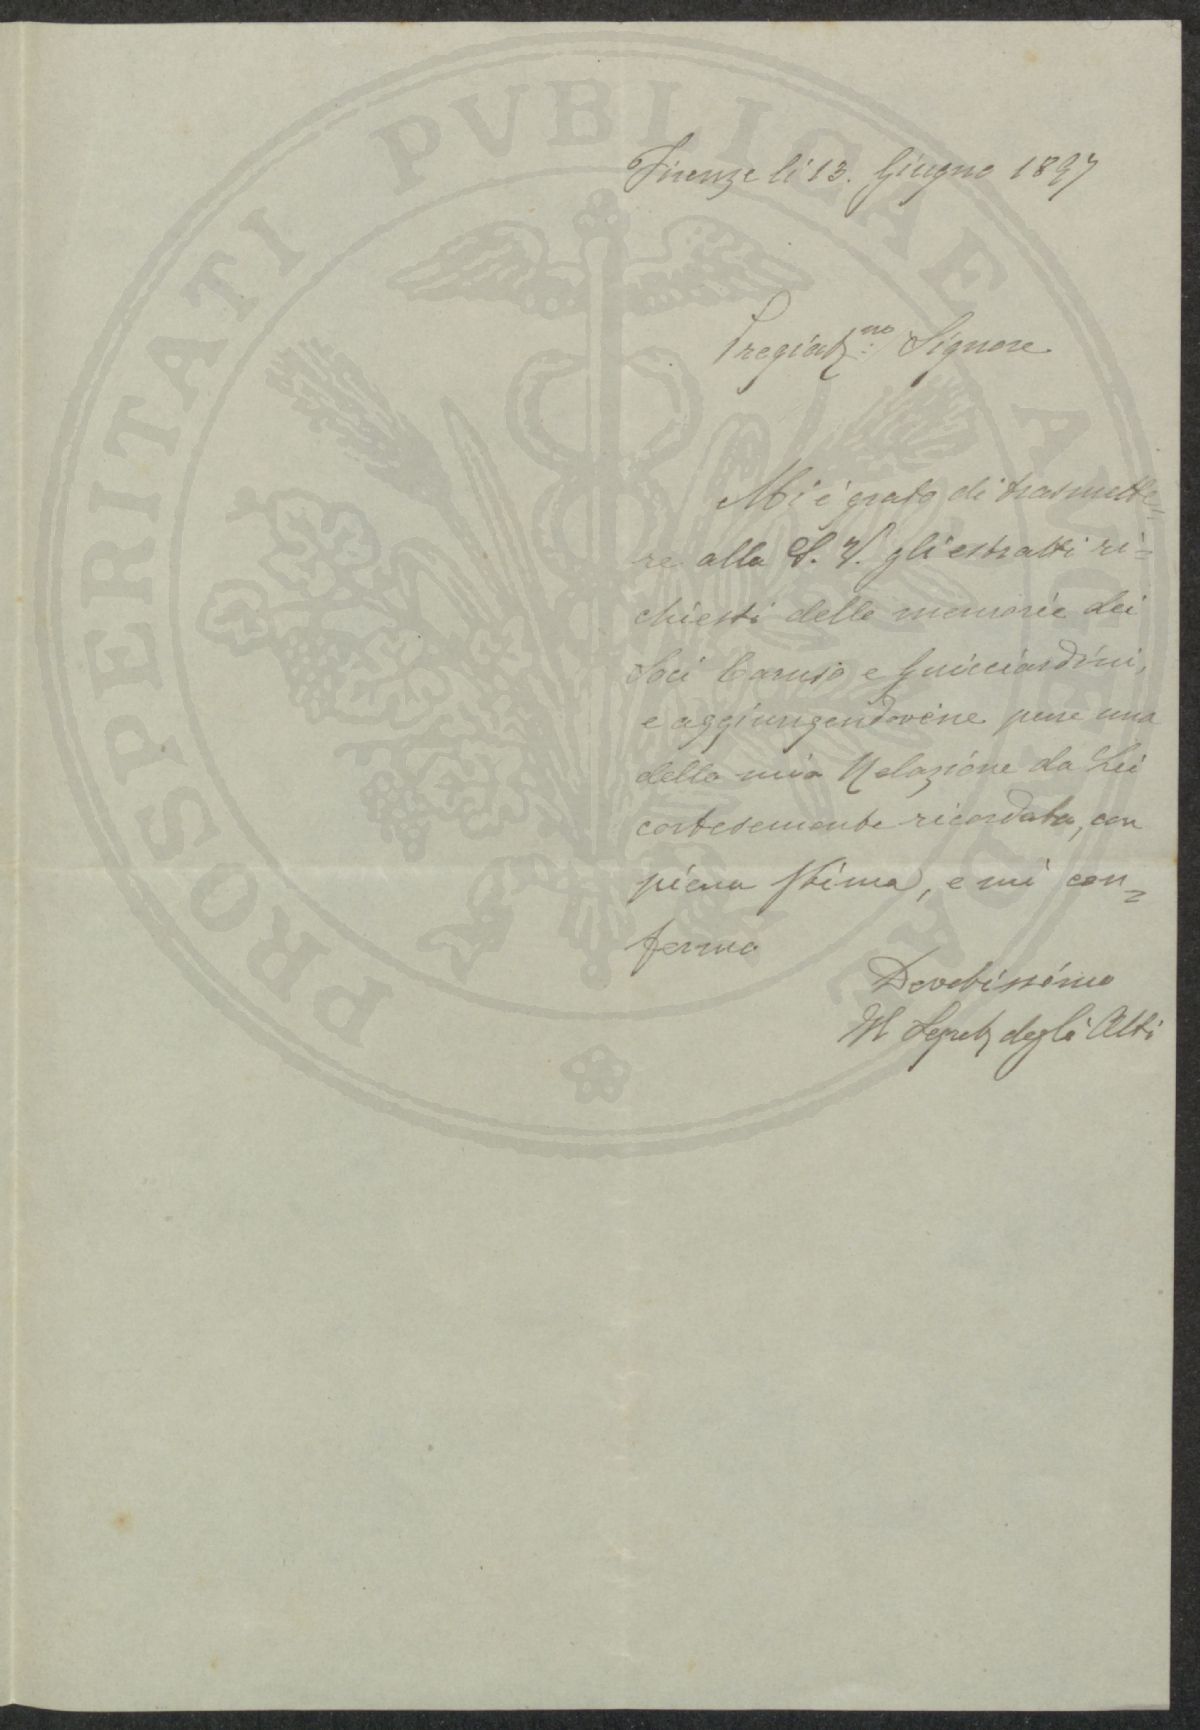 PROSPERITATI PVBLICAE AVGENDAE
Firenze li 13. Giugno 1897
Pregiatmo: Signore
Mi è grato di trasmette=
re alla S. V. gli estratti ri=
chiesti delle memorie dei
Soci Caruso e Guicciardini,
e aggiungendovene pure una
della mia Relazione da Lei
cortesemente ricordata, con
piena stima, e mi con=
fermo
Devotissimo
Il Segret degli Atti